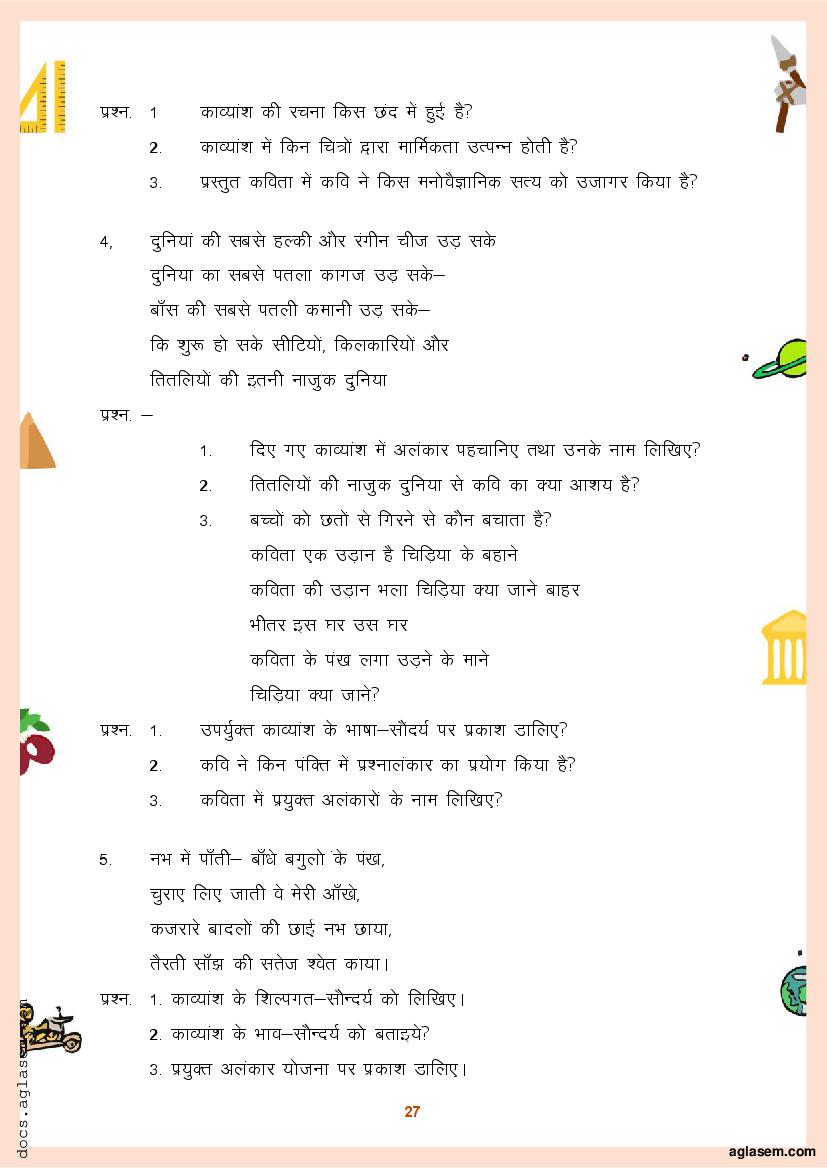 प्रश्न. 1 काव्यांश की रचना किस छंद में हुई है?
2. काव्यांश में किन चित्रों द्वारा मार्मिकता उत्पन्न होती है?
3. प्रस्तुत कविता में कवि ने किस मनोवैज्ञानिक सत्य को उजागर किया है?
4, दुनियां की सबसे हल्की और रंगीन चीज उड़ सके
दुनिया का सबसे पतला कागज उड़ सके–
बाँस की सबसे पतली कमानी उड़ सके–
कि शुरू हो सके सीटियों, किलकारियों और
तितलियों की इतनी नाजुक दुनिया
प्रश्न. –
1. दिए गए काव्यांश में अलंकार पहचानिए तथा उनके नाम लिखिए?
2. तितलियों की नाजुक दुनिया से कवि का क्या आशय है?
3. बच्चों को छतों से गिरने से कौन बचाता है?
कविता एक उड़ान है चिड़िया के बहाने
कविता की उड़ान भला चिड़िया क्या जाने बाहर
भीतर इस घर उस घर
कविता के पंख लगा उड़ने के माने
चिड़िया क्या जाने?
प्रश्न. 1. उपर्युक्त काव्यांश के भाषा–सौंदर्य पर प्रकाश डालिए?
2. कवि ने किन पंक्ति में प्रश्नालंकार का प्रयोग किया है?
3. कविता में प्रयुक्त अलंकारों के नाम लिखिए?
5. नभ में पाँती– बाँधे बगुलो के पंख,
चुराए लिए जाती वे मेरी आँखे,
कजरारे बादलों की छाई नभ छाया,
तैरती साँझ की सतेज श्वेत काया।
प्रश्न. 1. काव्यांश के शिल्पगत–सौन्दर्य को लिखिए।
2. काव्यांश के भाव–सौन्दर्य को बताइये?
3. प्रयुक्त अलंकार योजना पर प्रकाश डालिए।
27
docs.aglasem.com
aglasem.com